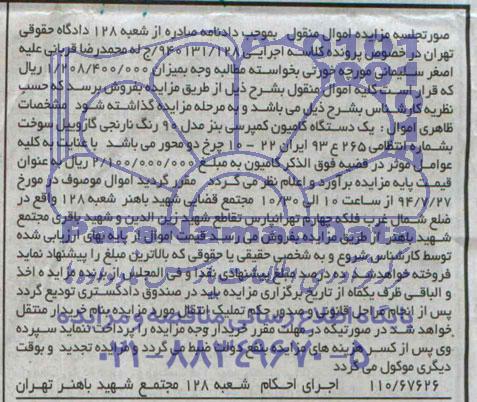 صورتجلسه مزایده اموال منقول بموجب دادنامه صادره از شعبه ۱۲۸ دادگاه حقوقی
تهران در خصوص پرونده کلاسه اجرایی ۹۴۰۱۳۱/۱۲۸/ج له محمدرضا قربانی علیه
اصغر سلیمانی مورچه خورتی بخواسته مطالبه وجه بمیزان ۱/۲۰۸/۴۰۰/۰۰۰ ریال
که قرار است کلیه اموال منقول بشرح ذیل از طریق مزایده بفروش برسد که حسب
نظریه کارشناس بشرح ذیل می باشد و به مرحله مزایده گذاشته شود مشخصات
ظاهری اموال : یک دستگاه کامیون کمپرسی بنز مدل ۹۰ رنگ نارنجی گازوییل سوخت
بشماره انتظامی ۲۶۵ ع ۹۲ ایران ۲۲ - ۱۰ چرخ دو محور می باشد با عنایت به کلیه
عوامل موثر در قضیه فوق الذکر کامیون به مبلغ ۲/۱۰۰/۰۰۰/۰۰۰ ریال به عنوان
قیمت پایه مزایده برآورد و اعلام نظر می گردد. مقرر گردید اموال موصوف در مورخ
۹۴/۷/۲۷ از ساعت ۱۰ الی ۱۰/۳۰ مجتمع قضایی شهید باهنر شعبه ۱۲۸ واقع در
ضلع شمال غرب فلکه چهارم تهرانپارس تقاطع شهید زین الدین و شهید باقری مجتمع
شهید باهنر از طریق مزایده بفروش می رسد قیمت اموال از پایه بهای ارزیابی شده
توسط کارشناس شروع و به شخصی حقیقی یا حقوقی که بالاترین مبلغ را پیشنهاد نماید
فروخته خواهد شد ده درصد مبلغ پیشنهادی نقدا و فی المجلس از برنده مزایده اخذ
و الباقی ظرف یکماه از تاریخ برگزاری مزایده باید در صندوق دادگستری تودیع گردد
پس از انجام مراحل قانونی و صدور حکم تملیک انتقال مورد مزایده بنام خریدار منتقل
خواهد شد در صورتیکه در مهلت مقرر خریدار وجه مزایده را پرداخت ننماید سپرده
وی پس از کسر هزینه های مزایده بنفع دولت ضبط می گردد و مزایده تجدید و بوقت
دیگری موکول می گردد
۱۱۰/۶۷۶۲۶ اجرای احکام شعبه ۱۲۸ مجتمع شهید باهنر تهران
ParsNamadData
۰۲۱-۸۸۳۴۹۶۷۰-۵